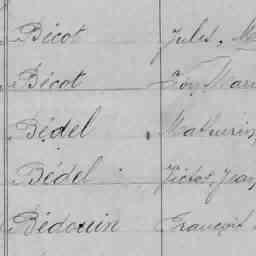 Bécot Jules, M
Bécot Léon Mari
Bédel Mathurin,
Bédel Victor, Jean
Bédouin François